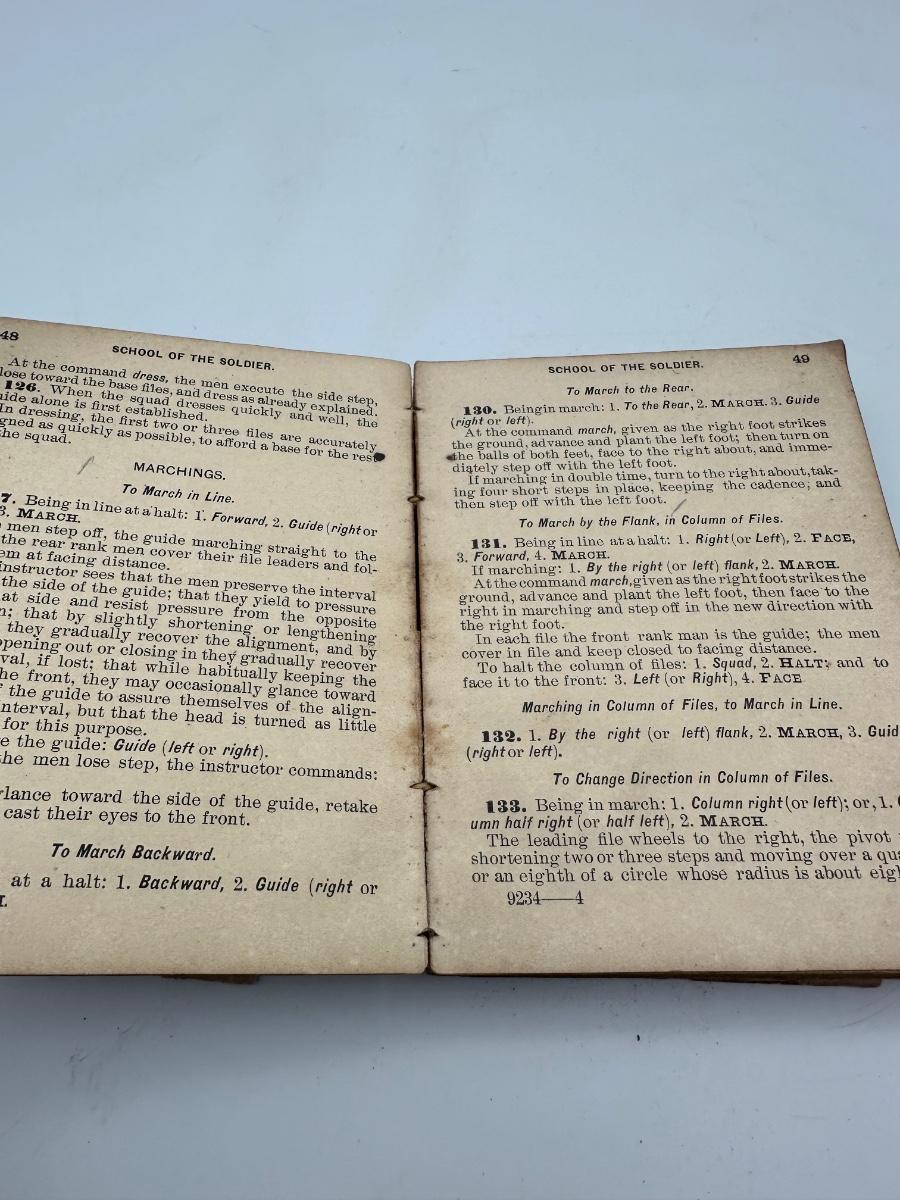 48
SCHOOL OF THE SOLDIER.
At the command dress, the men execute the side step,
lose toward the base files, and dress as already explained.
126. When the squad dresses quickly and well, the
uide alone is first established.
In dressing, the first two or three files are accurately
gned as quickly as possible, to afford a base for the rest
the squad.
MARCHINGS.
To March in Line.
7. Being in line at a halt: 1. Forward, 2. Guide (right or
3. MARCH.
men step off, the guide marching straight to the
the rear rank men cover their file leaders and fol-
em at facing distance.
instructor sees that the men preserve the interval
the side of the guide; that they yield to pressure
at side and resist pressure from the opposite
n; that by slightly shortening or lengthening
they gradually recover the alignment, and by
opening out or closing in they gradually recover
val, if lost; that while habitually keeping the
he front, they may occasionally glance toward
f the guide to assure themselves of the align-
nterval, but that the head is turned as little
for this purpose.
e the guide: Guide (left or right).
he men lose step, the instructor commands:
glance toward the side of the guide, retake
cast their eyes to the front.
To March Backward.
at a halt: 1. Backward, 2. Guide (right or
H.
SCHOOL OF THE SOLDIER. 49
To March to the Rear.
130. Being in march: 1. To the Rear, 2. MARCH. 3. Guide
(right or left).
At the command march, given as the right foot strikes
the ground, advance and plant the left foot; then turn on
the balls of both feet, face to the right about, and imme-
diately step off with the left foot.
If marching in double time, turn to the right about, tak-
ing four short steps in place, keeping the cadence; and
then step off with the left foot.
To March by the Flank, in Column of Files.
131. Being in line at a halt: 1. Right (or Left), 2. FACE,
3. Forward, 4. MARCH.
If marching: 1. By the right (or left) flank, 2. MARCH.
At the command march, given as the right foot strikes the
ground, advance and plant the left foot, then face to the
right in marching and step off in the new direction with
the right foot.
In each file the front rank man is the guide; the men
cover in file and keep closed to facing distance.
To halt the column of files: 1. Squad, 2. HALT; and to
face it to the front: 3. Left (or Right), 4. FACE
Marching in Column of Files, to March in Line.
132. 1. By the right (or left) flank, 2. MARCH, 3. Guid
(right or left).
To Change Direction in Column of Files.
133. Being in march: 1. Column right (or left); or, 1. C
umn half right (or half left), 2. MARCH.
The leading file wheels to the right, the pivot
shortening two or three steps and moving over a qua
or an eighth of a circle whose radius is about eigh
9234——4